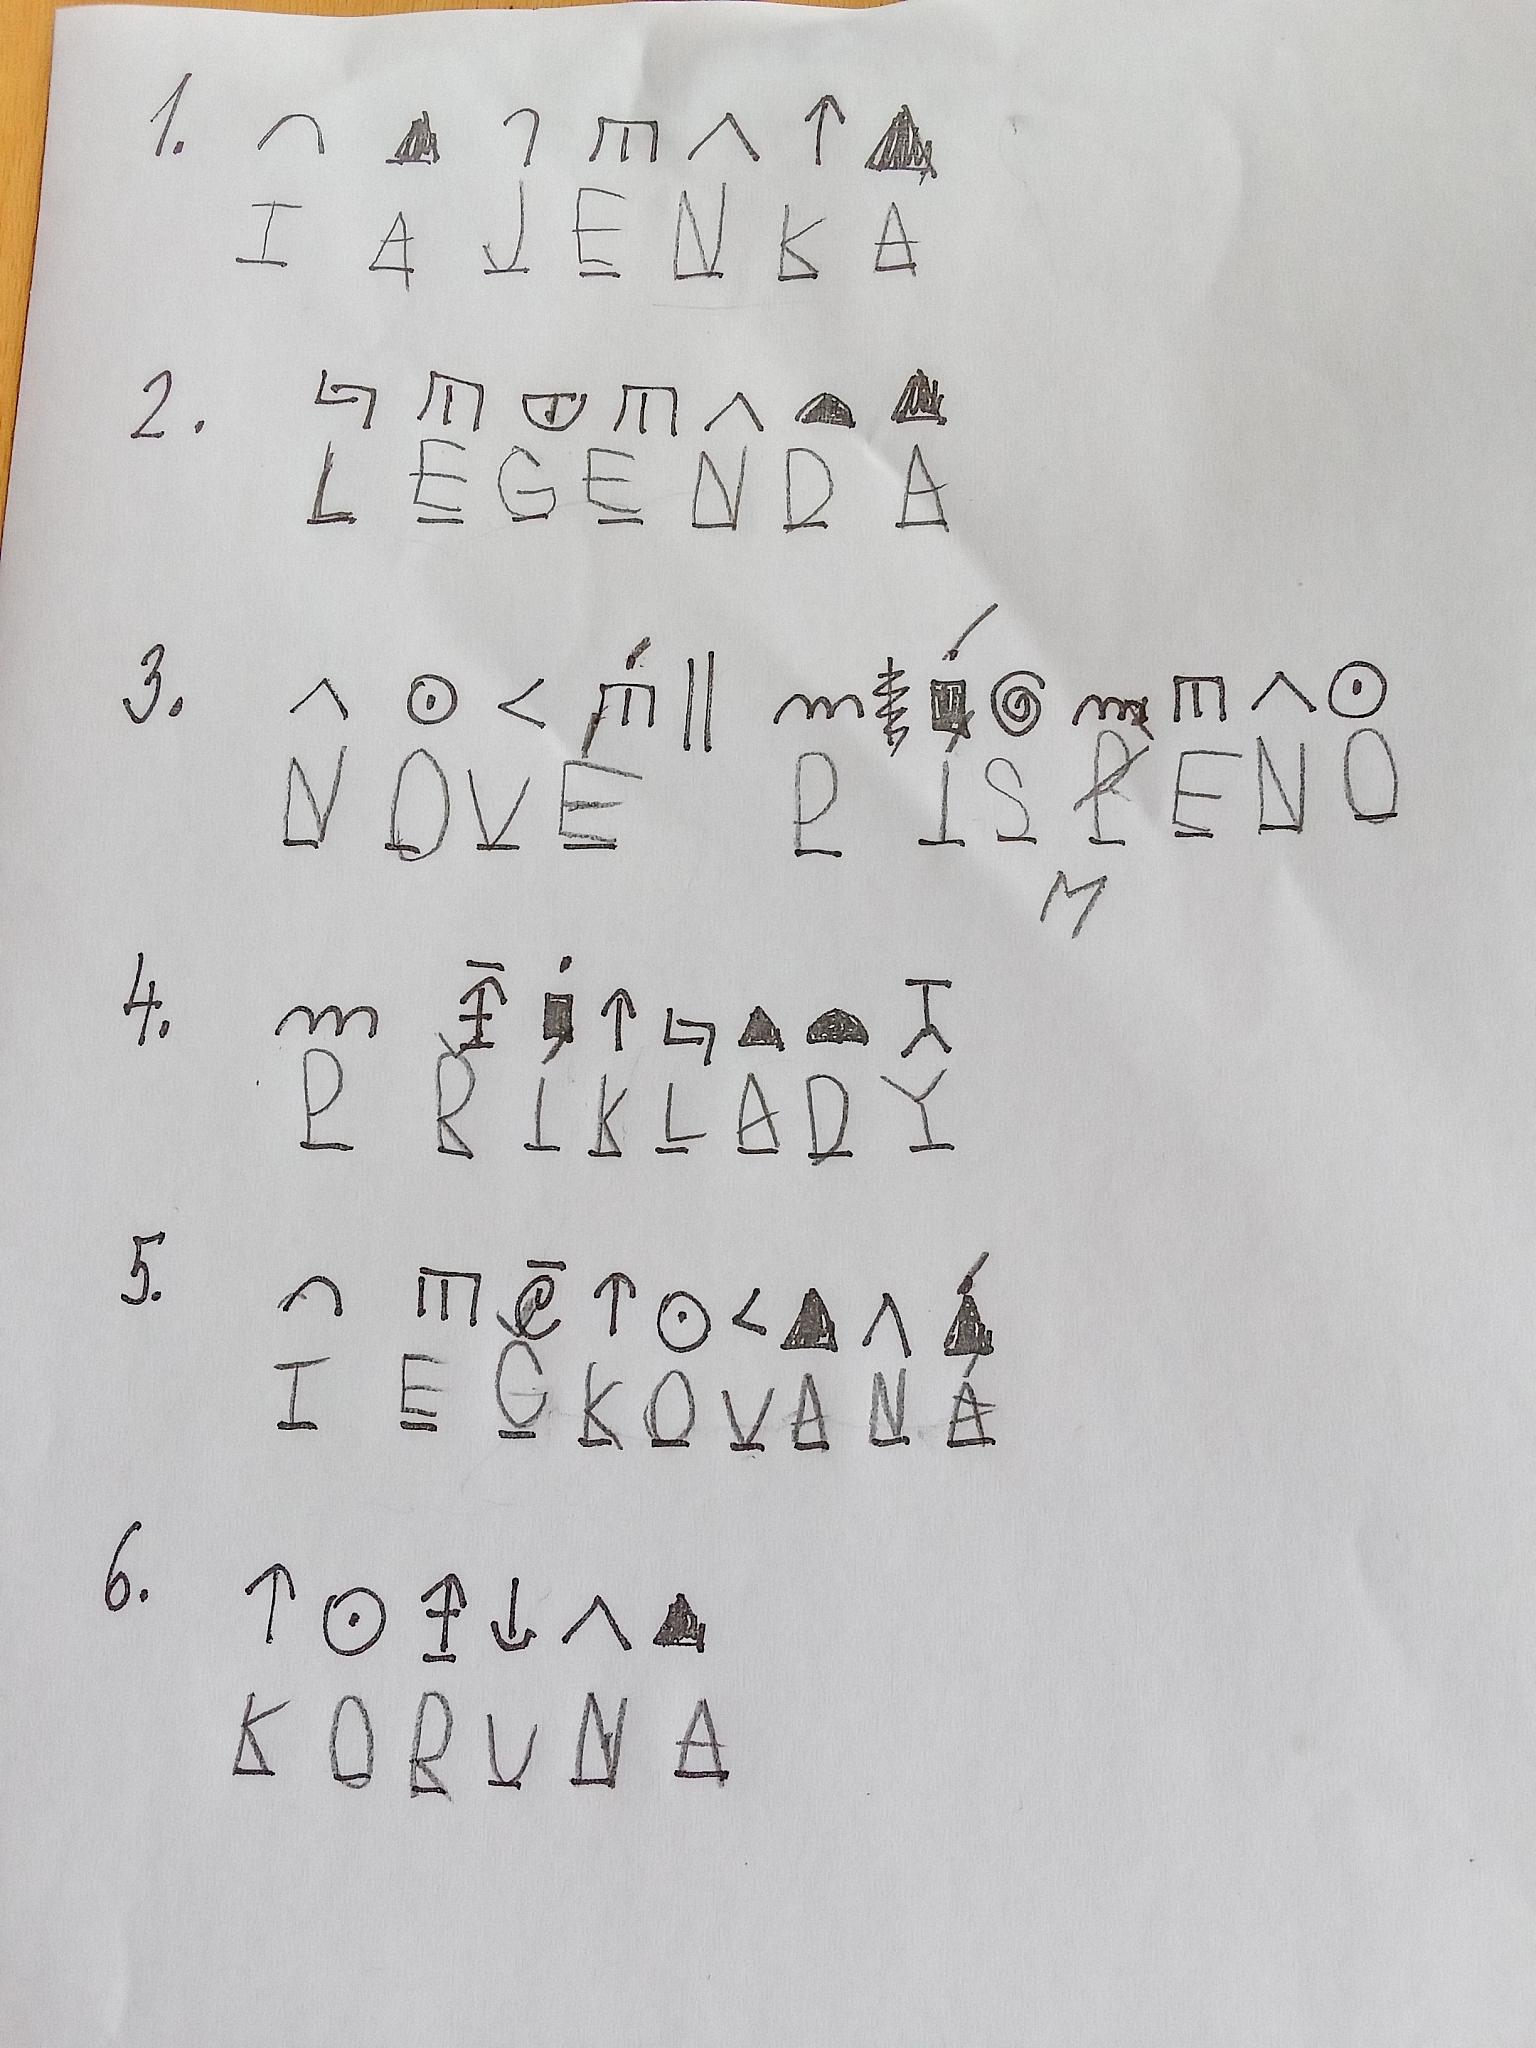 1.
I A J E N K A
2.
L E G E N D A
3.
N O V É P I S P E N O
M
4.
P Ř I K L A D Y
5.
I E G K O V A N Á
6.
K O R U N A